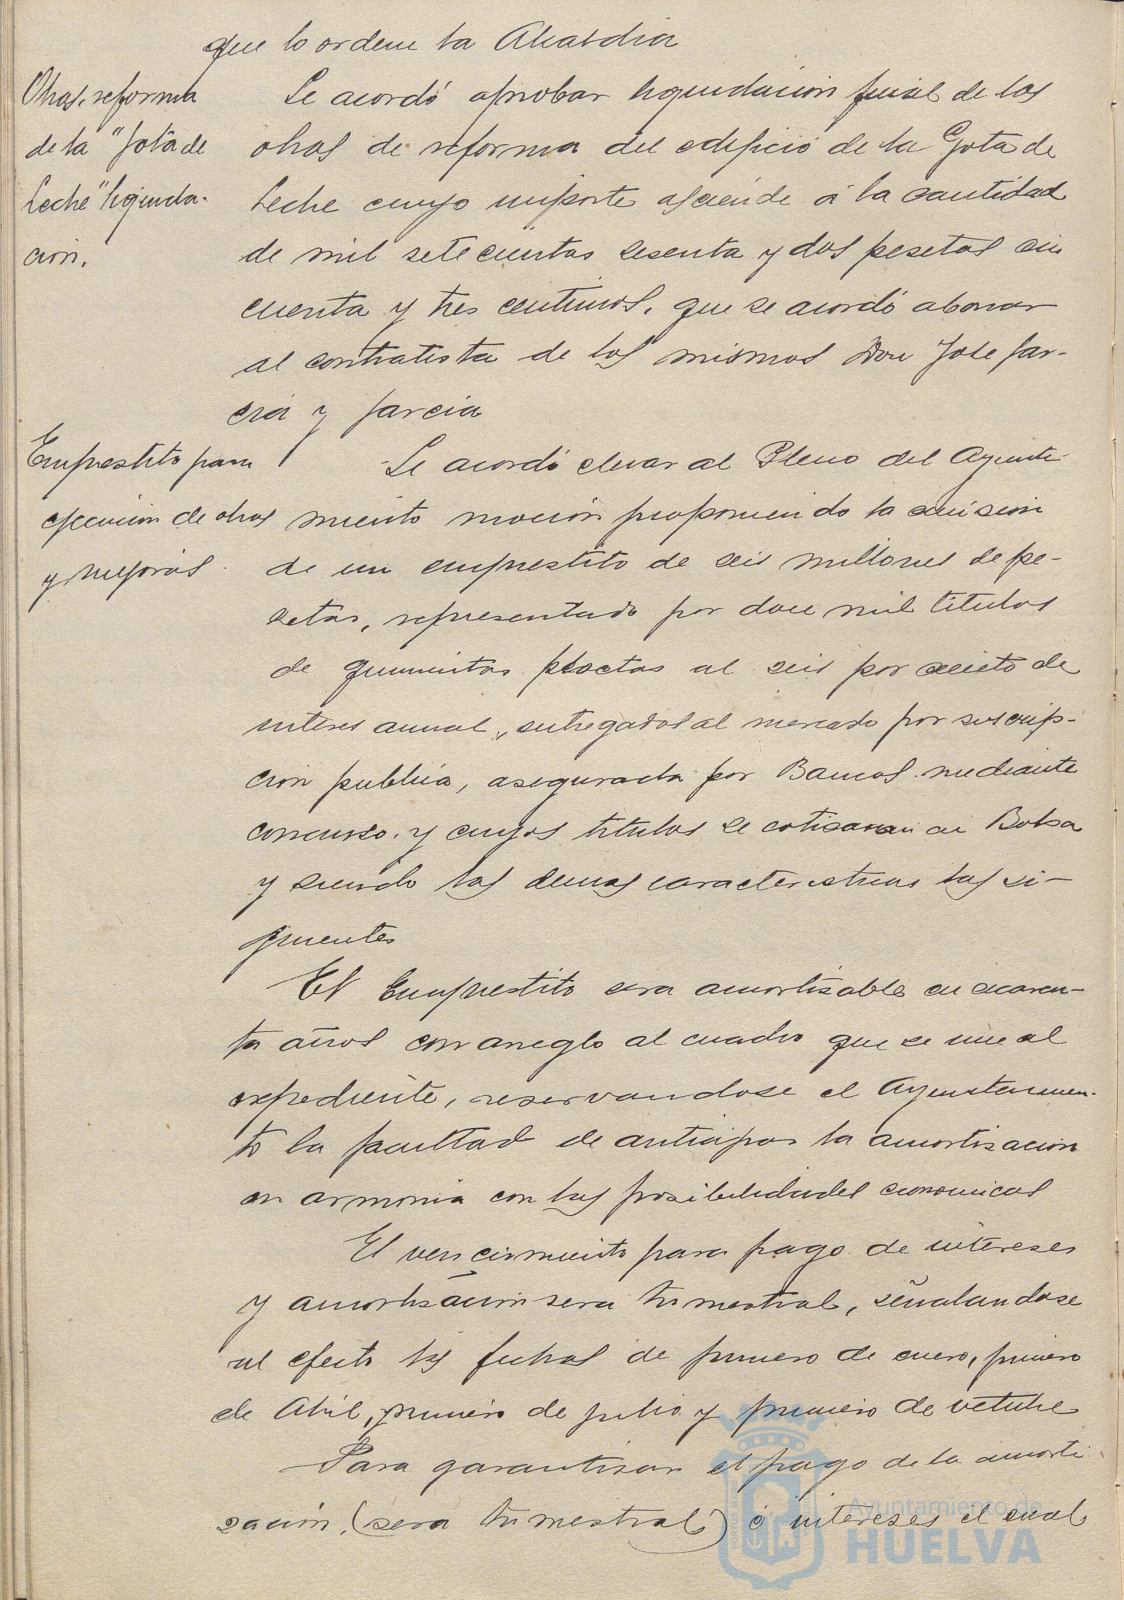 que lo ordene la Alcaldia
Obras reforma
de la "Gota de
Leche" liquida-
ción.
Se acordó aprobar liquidación final de las
obras de reforma del edificio de la Gota de
Leche cuyo importe asciende á la cantidad
de mil setecientas sesenta y dos pesetas cin
cuenta y tres centimos, que se acordó abonar
al contratista de las mismas Don Jose Gar-
cia y Garcia
Emprestito para
ejecucion de obras
y mejoras.
Se acordó elevar al Pleno del Ayunta-
miento moción proponiendo la emision
de un emprestito de seis millones de pe-
setas, representado por doce mil titulos
de quinientas pesetas al seis por ciento de
interes anual, entregados al mercado por suscrip-
cion publica, asegurada por Bancos mediante
concurso y cuyos titulos se cotizaran en Bolsa
y siendo las demas caracteristicas las si-
guientes
El Emprestito sera amortizable en cuaren-
ta años con arreglo al cuadro que se une al
expediente, reservandose el Ayuntamien-
to la facultad de anticipar la amortizacion
en armonia con las posibilidades economicas
El vencimiento para pago de intereses
y amortización sera trimestral, señalandose
al efecto las fechas de primero de enero, primero
de Abril, primero de julio y primero de octubre
Para garantizar el pago de la amorti
zación, (sera trimestral) é intereses el cual
Ayuntamiento de
HUELVA